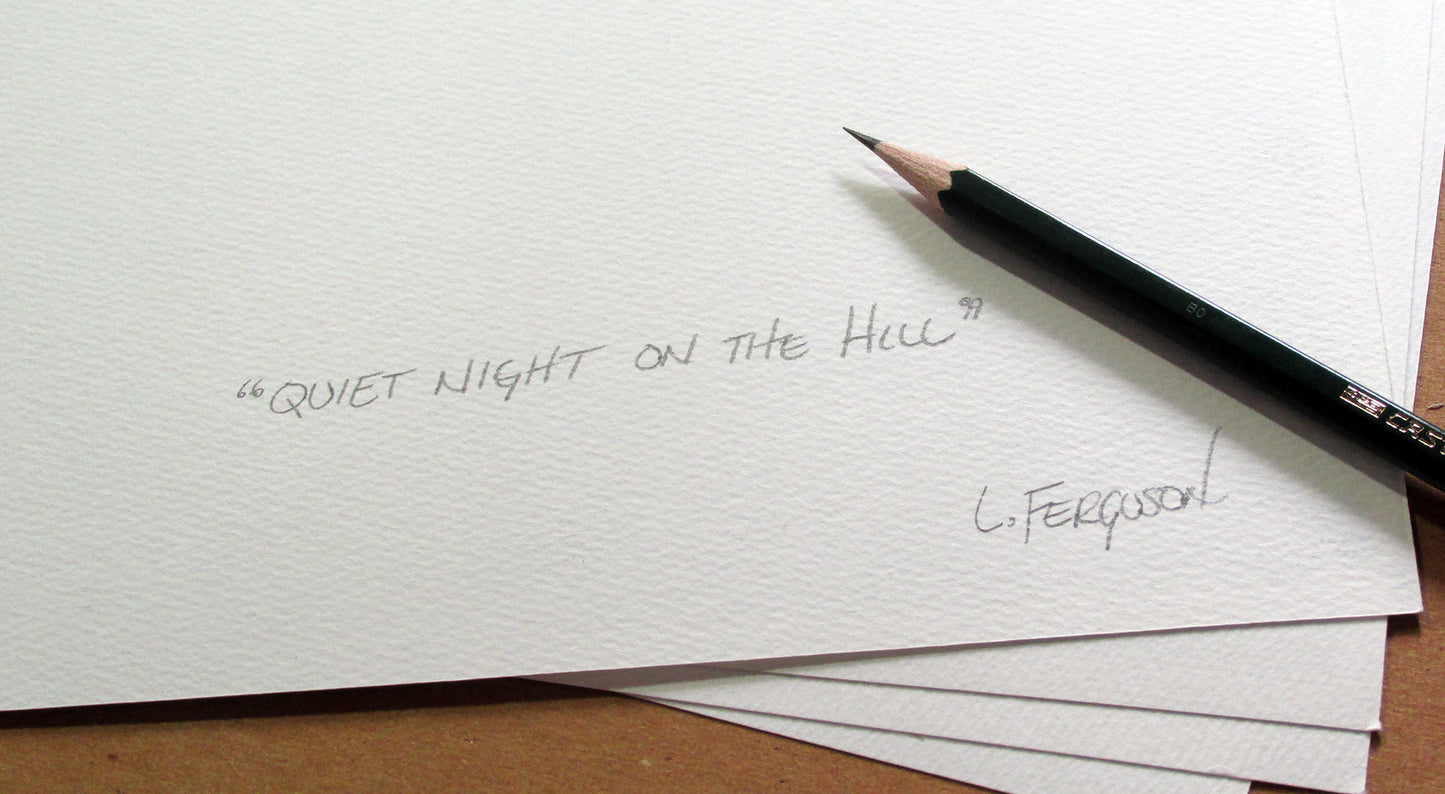 “QUIET NIGHT ON THE HILL”
L. FERGUSON